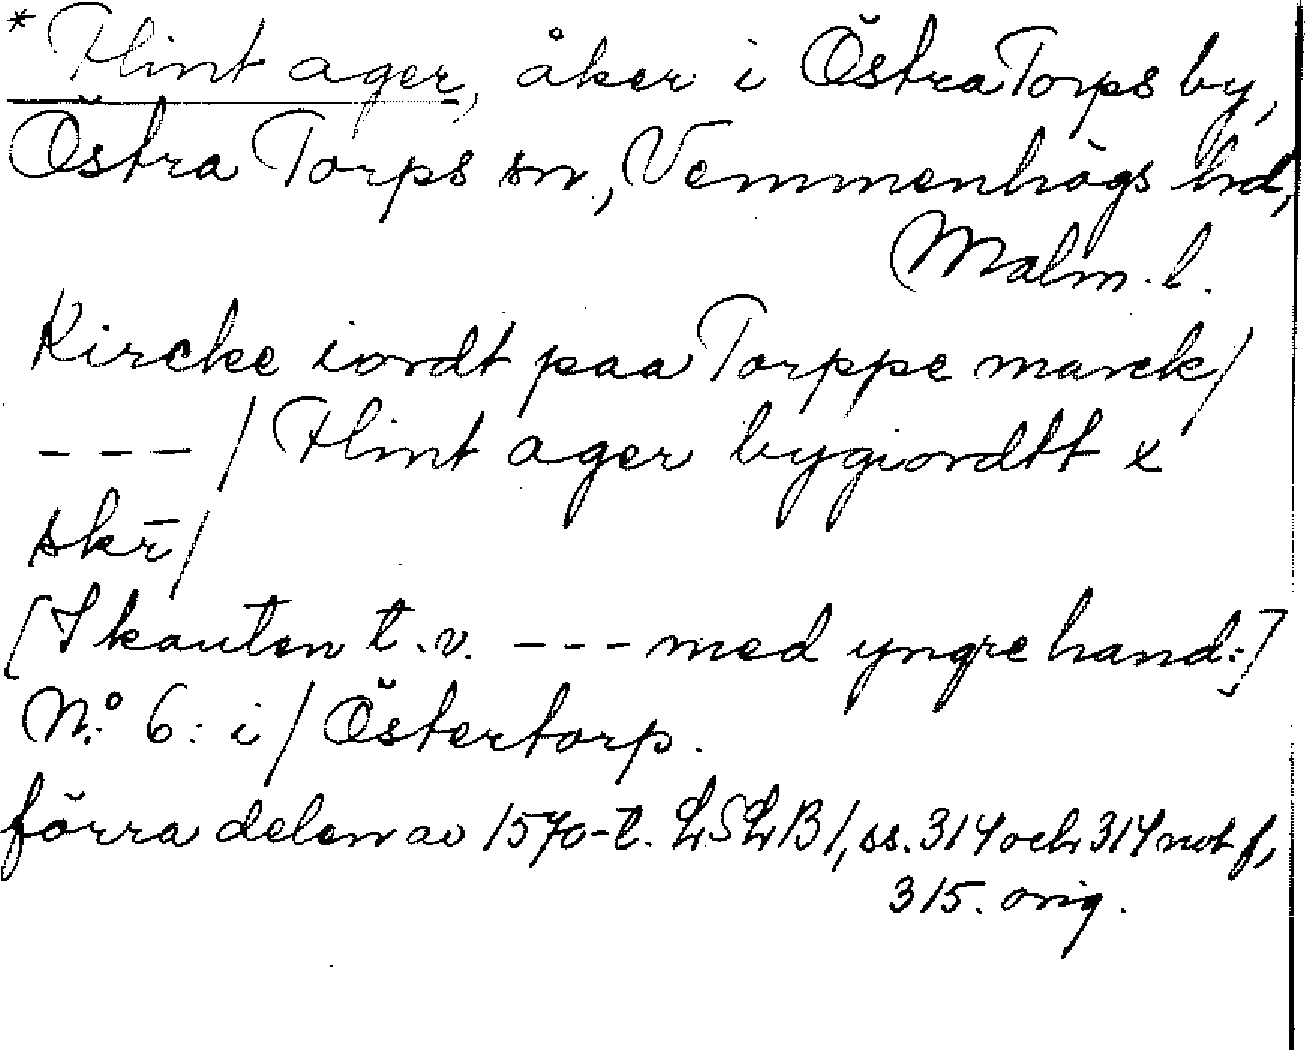 * Flint ager, åker i Östra Torps by,
Östra Torps sn, Vemmenhögs hd,
Malm. l.
Kircke iordt paa Torppe marck/
--- / Flint ager bygiordtt x
skr̄/
[I kanten t.v. --- med yngre hand:]
N:o 6: i / Östertorp.
förra delen av 1570-t. LSLB 1, ss. 314 och 314 not f,
315. orig.